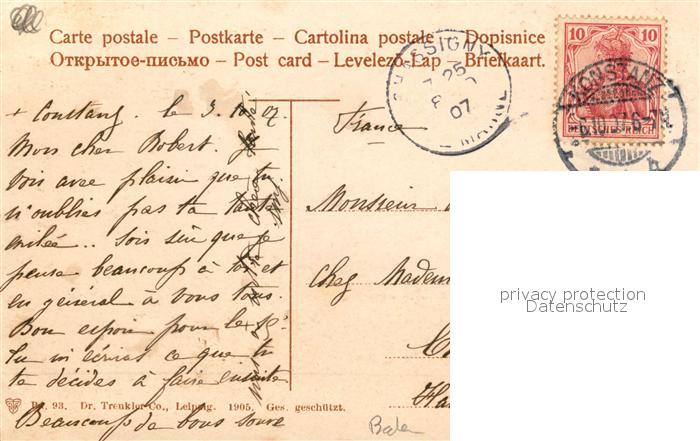 Carte postale – Postkarte – Cartolina postale – Dopisnice
Открытое-письмо – Post card – Levelező-Lap – Briefkaart.
10 10
DEUTSCHES REICH
KONSTANZ
SIGNY
25
07
MARNE
Constanz le 3. 10 07
France
Mon cher Robert. Je
vois avec plaisir que tu
n'oublies pas ta tante
exilée.. Sois sûr que je
pense beaucoup à toi et
en général à vous tous.
Bon espoir pour le
Tu m'écriras ce que tu
te décides à faire ensuite
Beaucoup de bons souve
Monsieur
Chez Madem
Ha
privacy protection
Datenschutz
93. Dr. Trenkler Co., Leipzig. 1905. Ges. geschützt.
Baden